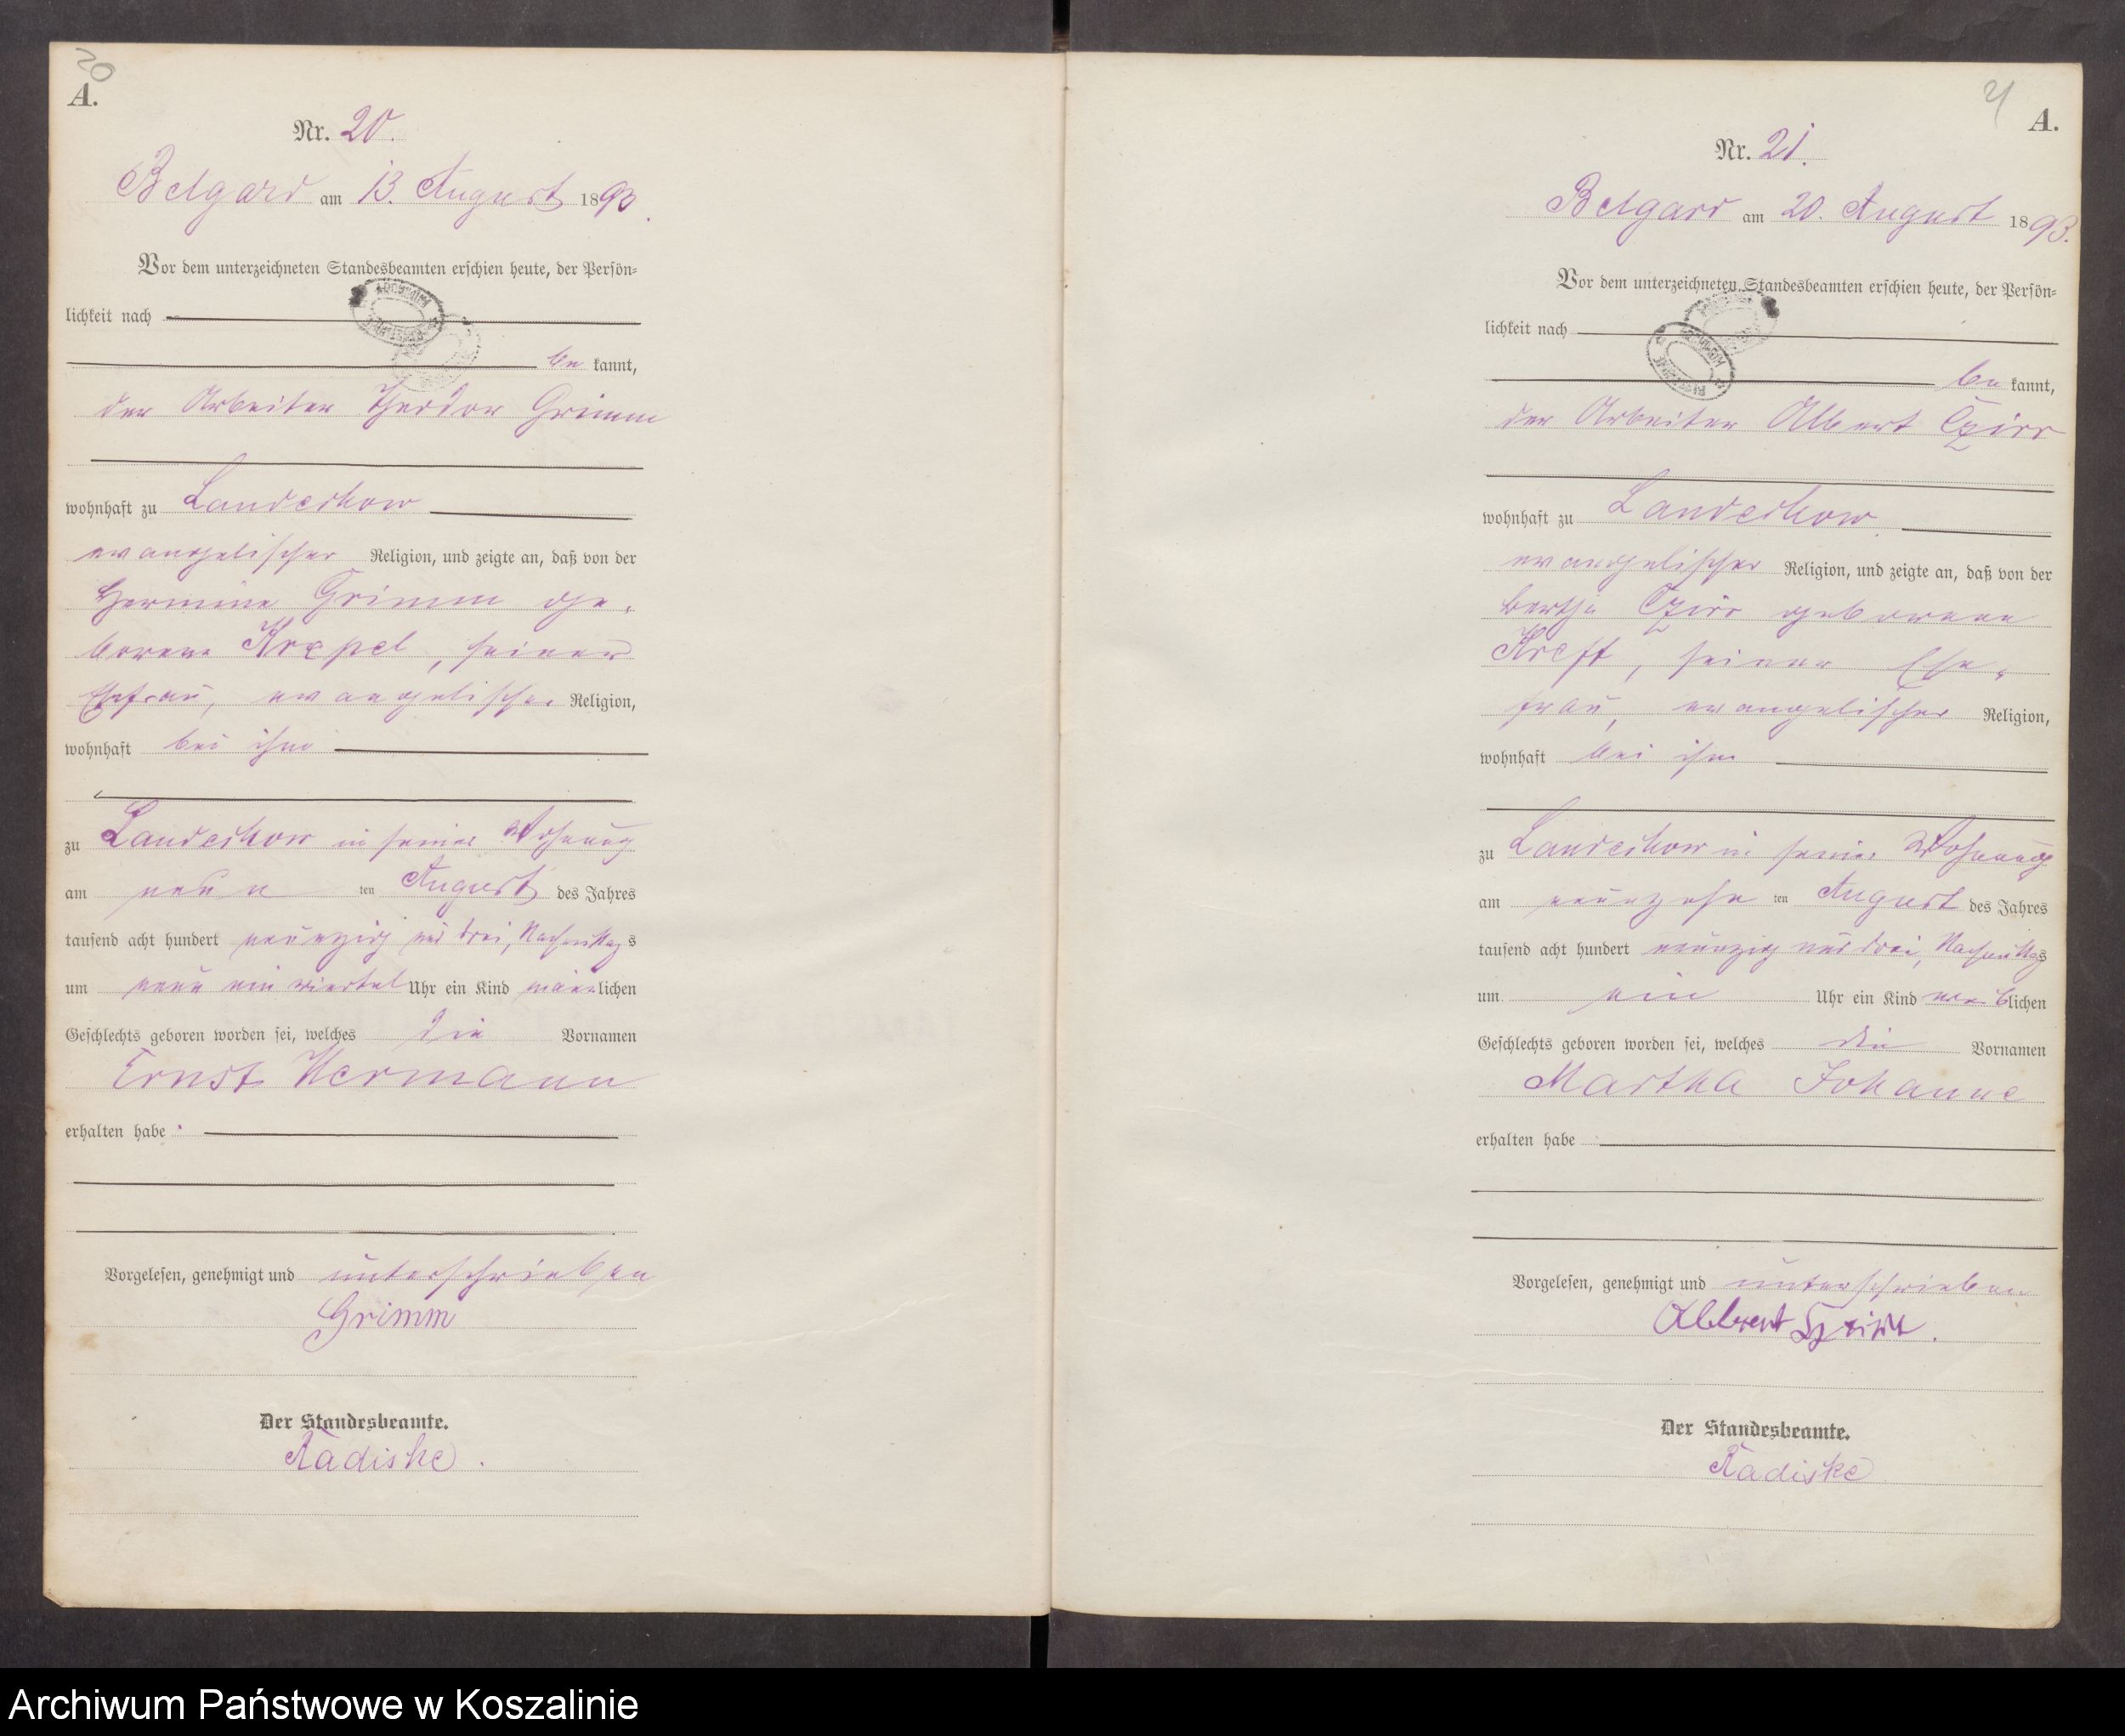 20
A.
Nr. 20.
Belgard am 13. August 1893.
Vor dem unterzeichneten Standesbeamten erschien heute, der Persön-
lichkeit nach
be kannt,
der Arbeiter Theodor Grimm
wohnhaft zu Landechow
evangelischer Religion, und zeigte an, daß von der
Hermine Grimm ge-
borene Krepel, seiner
Ehefrau, evangelischer Religion,
wohnhaft bei ihm
zu Landechow in seiner Wohnung
am neun ten August des Jahres
tausend acht hundert neunzig und drei, Nachmittags
um neun ein viertel Uhr ein Kind männlichen
Geschlechts geboren worden sei, welches die Vornamen
Ernst Hermann
erhalten habe.
Vorgelesen, genehmigt und unterschrieben
Grimm
Der Standesbeamte.
Radiske.
21
A.
Nr. 21.
Belgard am 20. August 1893.
Vor dem unterzeichneten Standesbeamten erschien heute, der Persön-
lichkeit nach
be kannt,
der Arbeiter Albert Czirr
wohnhaft zu Landechow
evangelischer Religion, und zeigte an, daß von der
Bertha Czirr geborene
Kreft, seiner Ehe-
frau, evangelischer Religion,
wohnhaft bei ihm
zu Landechow in seiner Wohnung
am neunzehn ten August des Jahres
tausend acht hundert neunzig und drei, Nachmittags
um ein Uhr ein Kind weiblichen
Geschlechts geboren worden sei, welches die Vornamen
Martha Johanne
erhalten habe
Vorgelesen, genehmigt und unterschrieben
Albert
Der Standesbeamte.
Radiske
Archiwum Państwowe w Koszalinie